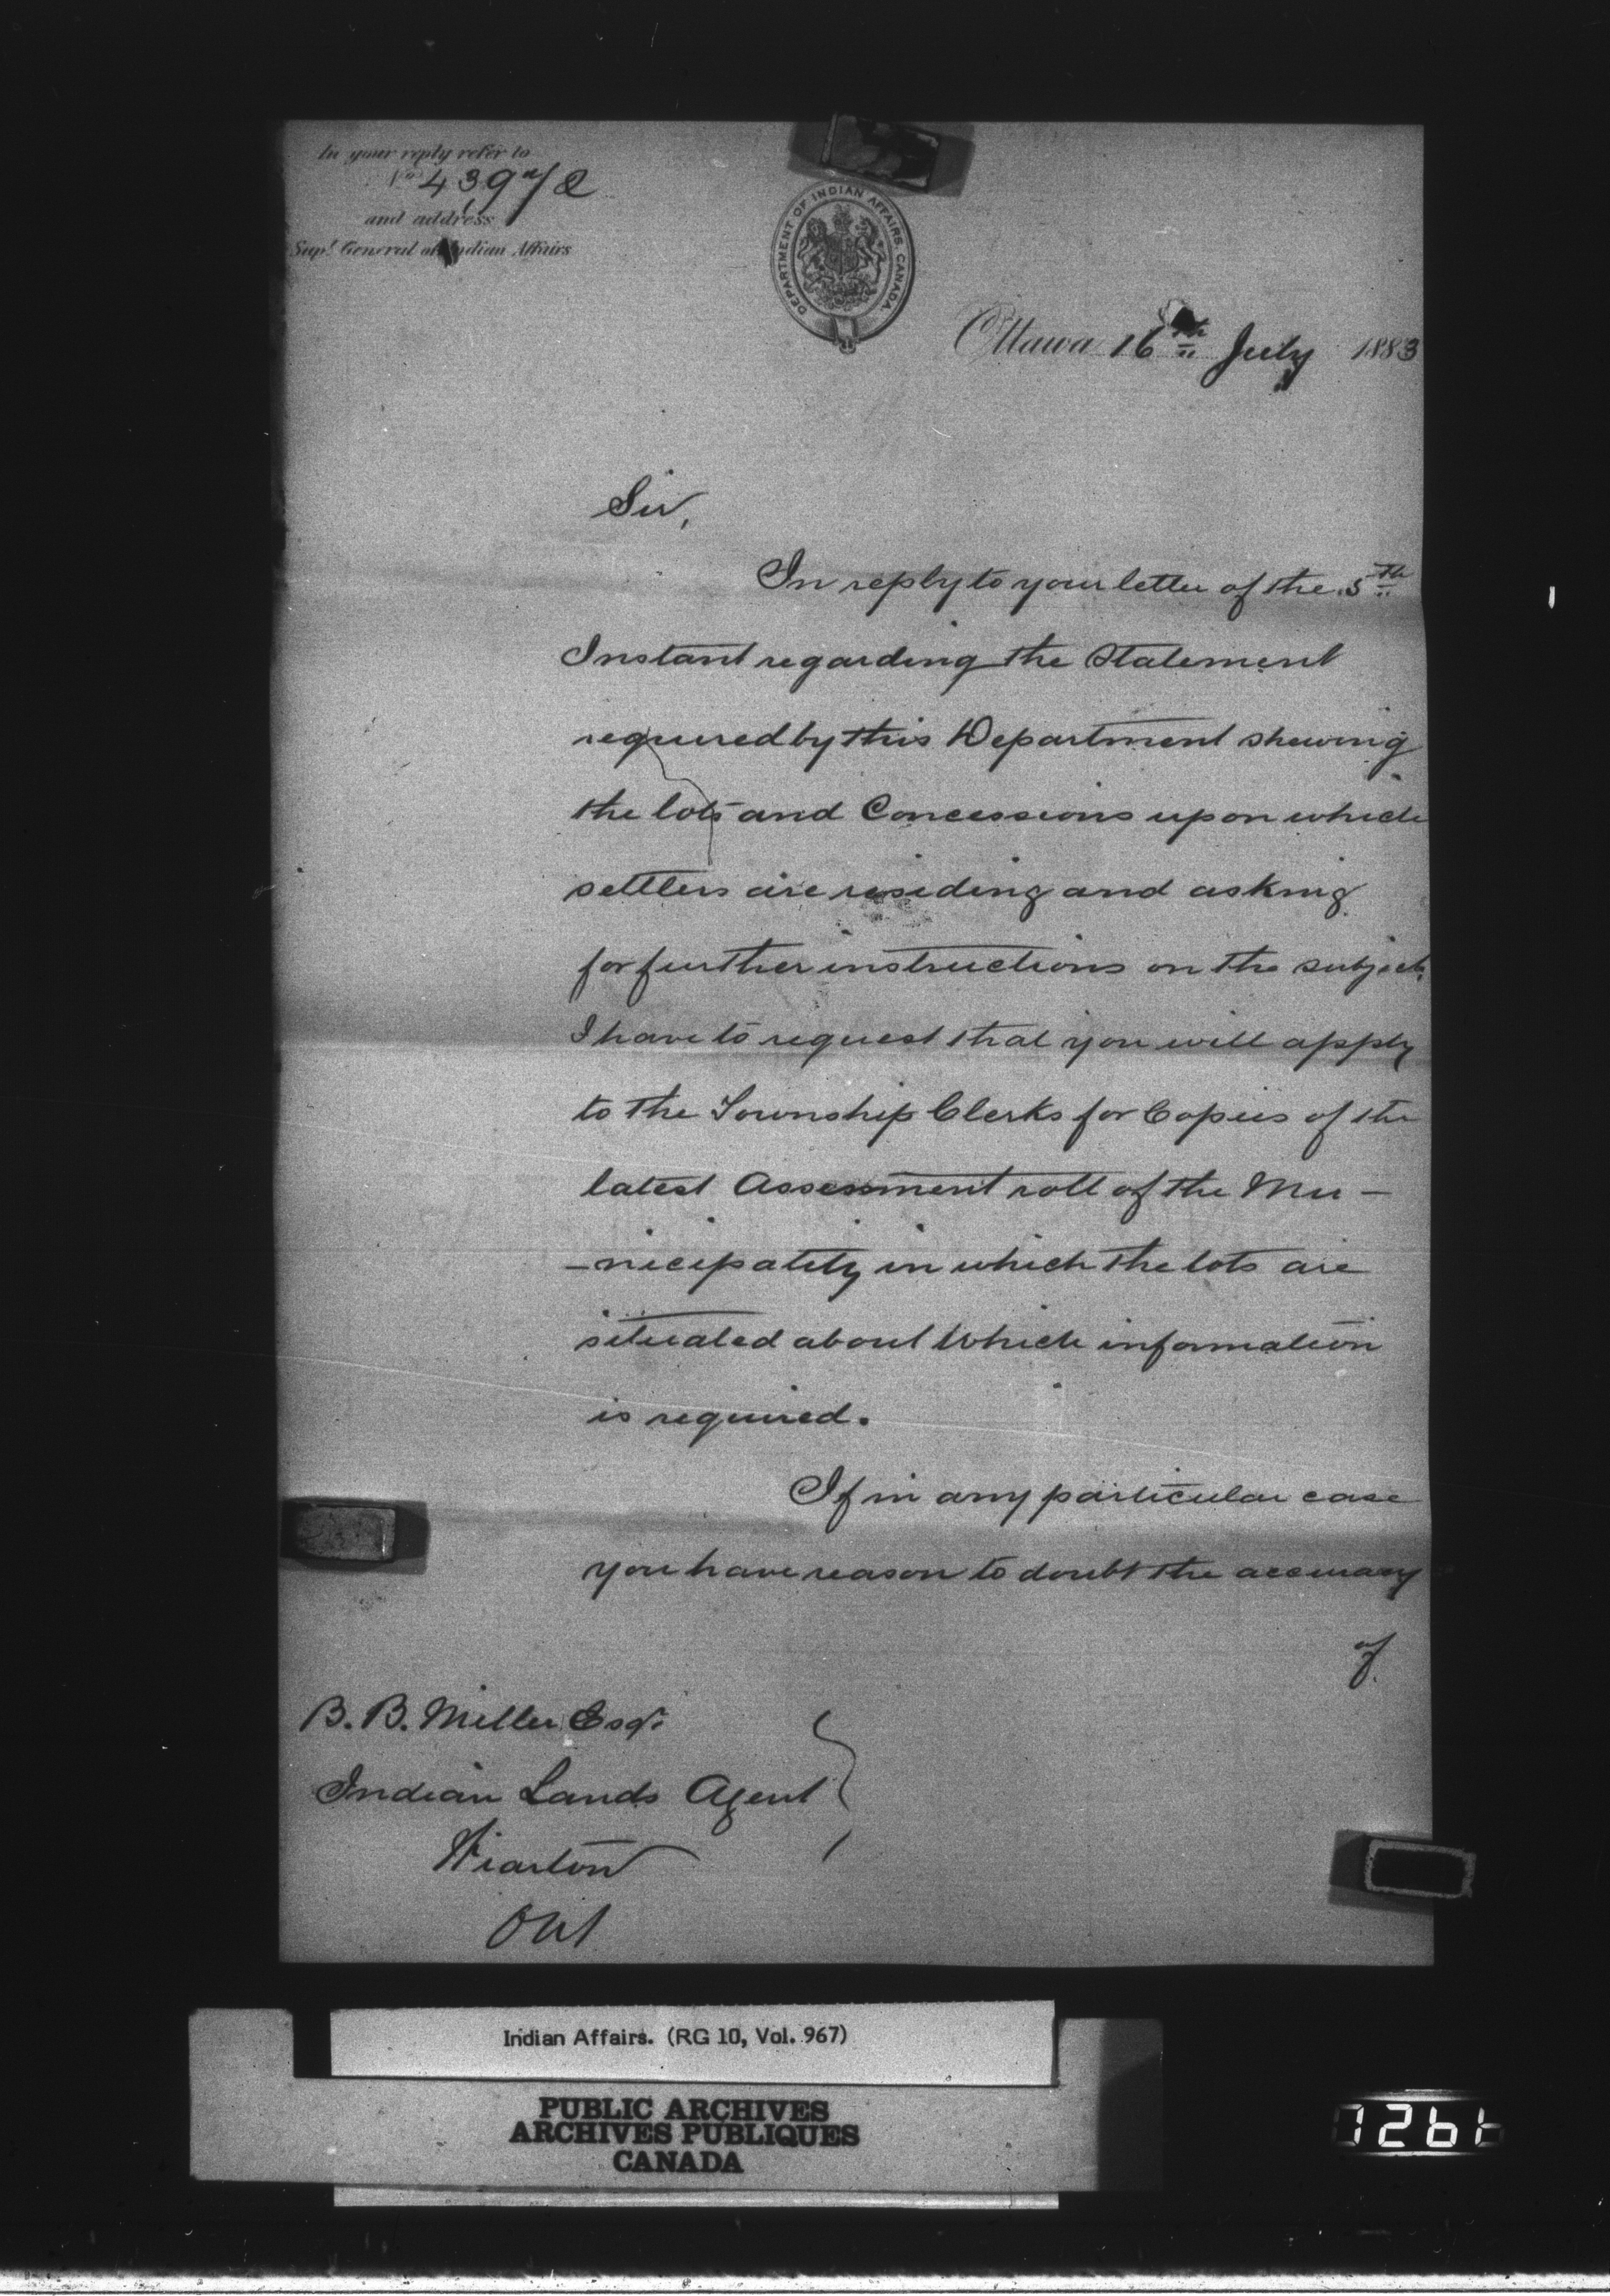 In your reply refer to
No 439
and address
Supt. General of Indian Affairs
DEPARTMENT OF INDIAN AFFAIRS. CANADA.
Ottawa 16th July 1883
Sir,
In reply to your letter of the 5th
Instant regarding the Statement
required by this Department shewing
the lots and Concessions upon which
settlers are residing and asking
for further instructions on the subject,
I have to request that you will apply
to the Township Clerks for Copies of the
latest Assessment roll of the Mu-
-nicipality in which the lots are
situated about which information
is required.
If in any particular case
you have reason to doubt the accuracy
of
B. B. Miller Esqr.
Indian Lands Agent
Wiarton
Ont
Indian Affairs. (RG 10, Vol. 967)
PUBLIC ARCHIVES
ARCHIVES PUBLIQUES
CANADA